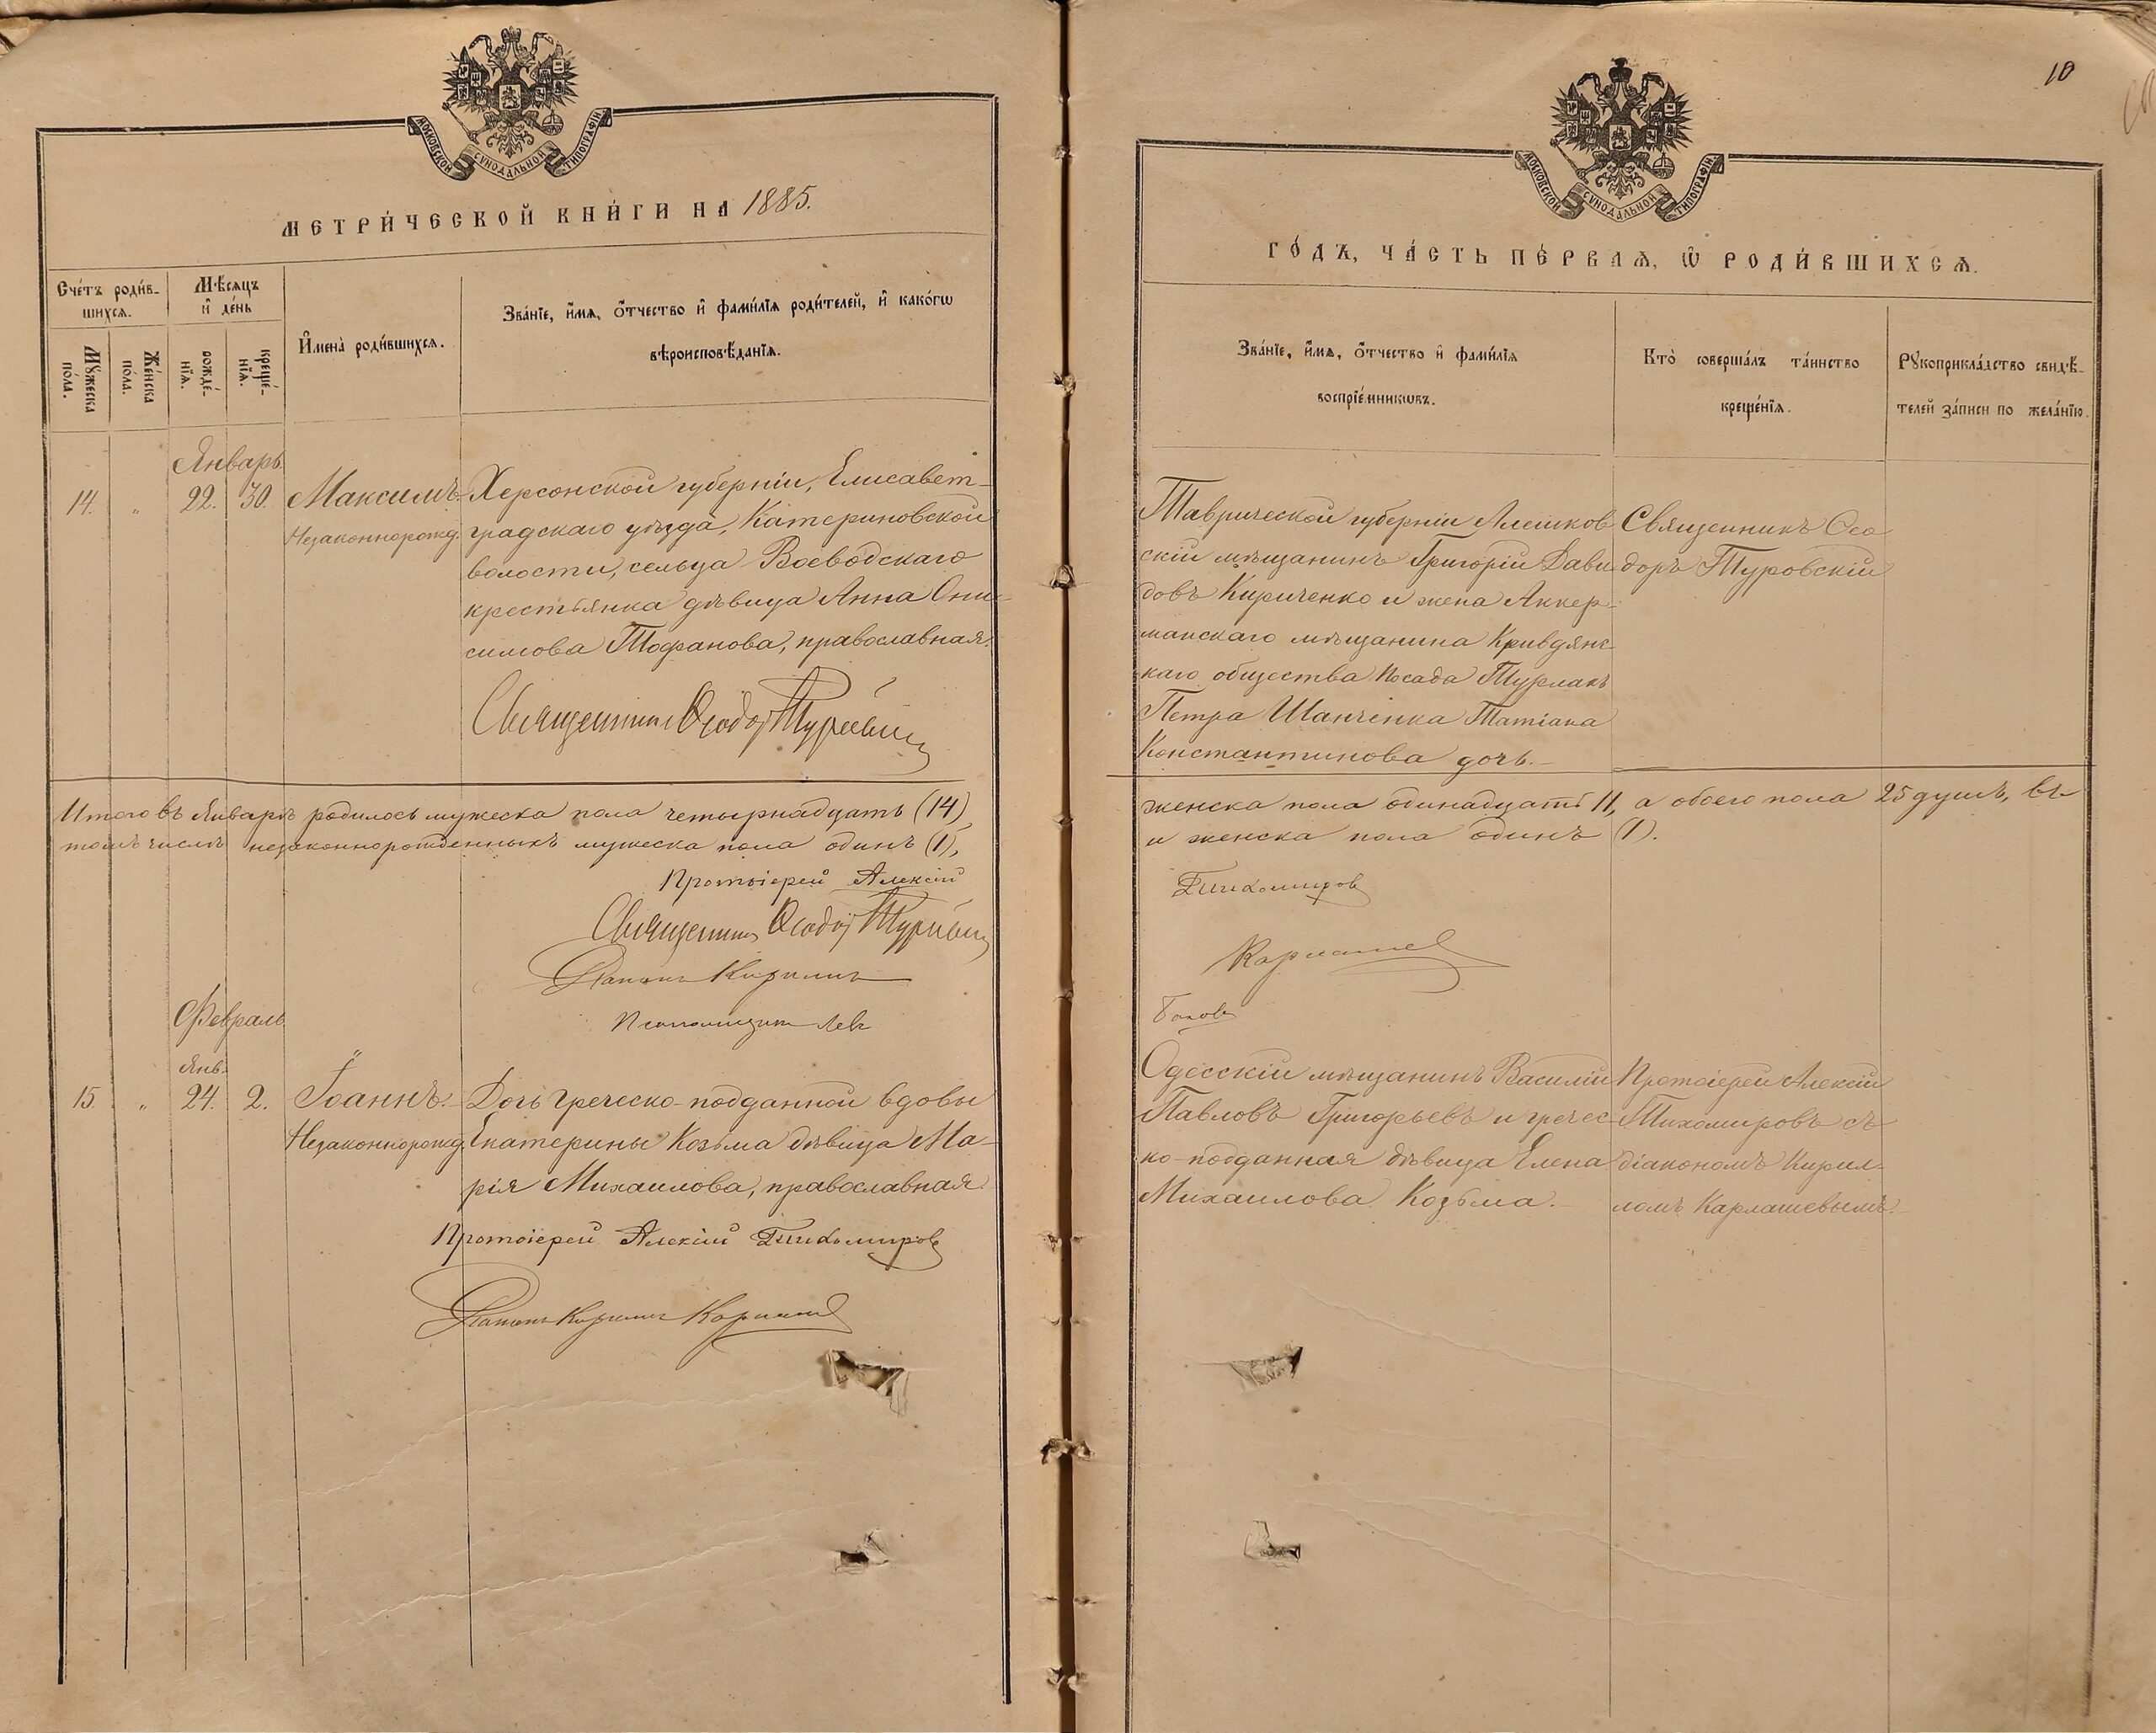 МОСКОВСКОЙ СѴНОДАЛЬНОЙ ТИПОГРАФІИ
МЕТРИ́ЧЕСКОЙ КНИ́ГИ НА 1885.
Сче́тъ роди́в-
шихсѧ.
Мѣ́сѧцъ
и҆ де́нь
Мꙋ́жеска
по́ла.
Же́нска
по́ла.
рожде́-
нїѧ.
креще́-
нїѧ.
И҆мена̀ роди́вшихсѧ.
Зва́нїе, и҆́мѧ, ѻ҆́тчество и҆ фами́лїѧ роди́телей, и҆ како́гѡ
вѣроисповѣ́данїѧ.
Январь
14. „ 22. 30. Максимъ. Херсонской губерніи, Елисавет-
Незаконнорожд. градскаго уѣзда, Катериновской
волости, сельца Воеводскаго
крестьянка дѣвица Анна Они-
симова Тофанова, православная.
Священникъ Ѳеодоръ Туровскій
Итого въ Январѣ родилось мужеска пола четырнадцать (14)
томъ числѣ незаконнорожденныхъ мужеска пола одинъ (1),
Протоіерей Алексій
Священникъ Ѳеодоръ Туровскій
Діаконъ Кириллъ
Псаломщикъ Левъ
Февраль
Янв.
15. „ 24. 2. Іоаннъ. Дочь Греческо-подданной вдовы
Незаконнорожд. Екатерины Козьма дѣвица Ма-
рія Михаилова, православная.
Протоіерей Алексій Тихомировъ
Діаконъ Кириллъ Карлашев
10
МОСКОВСКОЙ СѴНОДАЛЬНОЙ ТИПОГРАФІИ
ГО́ДЪ, ЧА́СТЬ ПЕ́РВАѦ, Ѽ РОДИ́ВШИХСѦ.
Зва́нїе, и҆́мѧ, ѻ҆́тчество и҆ фами́лїѧ
воспрїе́мникѡвъ.
Кто̀ соверша́лъ та́инство
креще́нїѧ.
Рꙋкоприкла́дство свидѣ́-
телей за́писи по жела́нїю.
Таврической губерніи Алешков-
скій мѣщанинъ Григорій Дави-
довъ Кириченко и жена Аккер-
манскаго мѣщанина Кривдянс-
каго общества Посада Турлакъ
Петра Шанченка Татіана
Константинова дочь.-
Священникъ Ѳео
доръ Туровскій
женска пола одинадцать 11, а обоего пола 25 душъ, въ
и женска пола одинъ (1).
Тихомировъ
Карлашев
Одесскій мѣщанинъ Василій
Павловъ Григорьевъ и гречес-
ко-подданная дѣвица Елена
Михаилова Козьма.-
Протоіерей Алексій
Тихомировъ съ
діакономъ Кирил-
ломъ Карлашевымъ.-